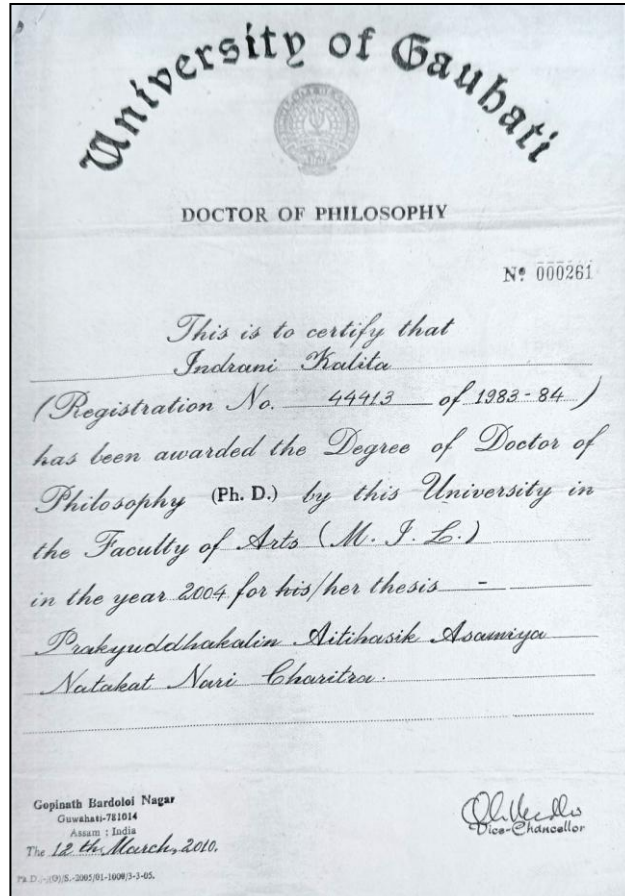 University of Gauhati
DOCTOR OF PHILOSOPHY
Nº 000261
This is to certify that
Indrani Kalita
(Registration No. 44413 of 1983-84)
has been awarded the Degree of Doctor of
Philosophy (Ph. D.) by this University in
the Faculty of Arts (M. I. L.)
in the year 2004 for his/her thesis -
Prakyuddhakalin Aitihasik Asamiya
Natakat Nari Charitra.
Gopinath Bardoloi Nagar
Guwahati-781014
Assam : India
The 12 th March, 2010.
Vice-Chancellor